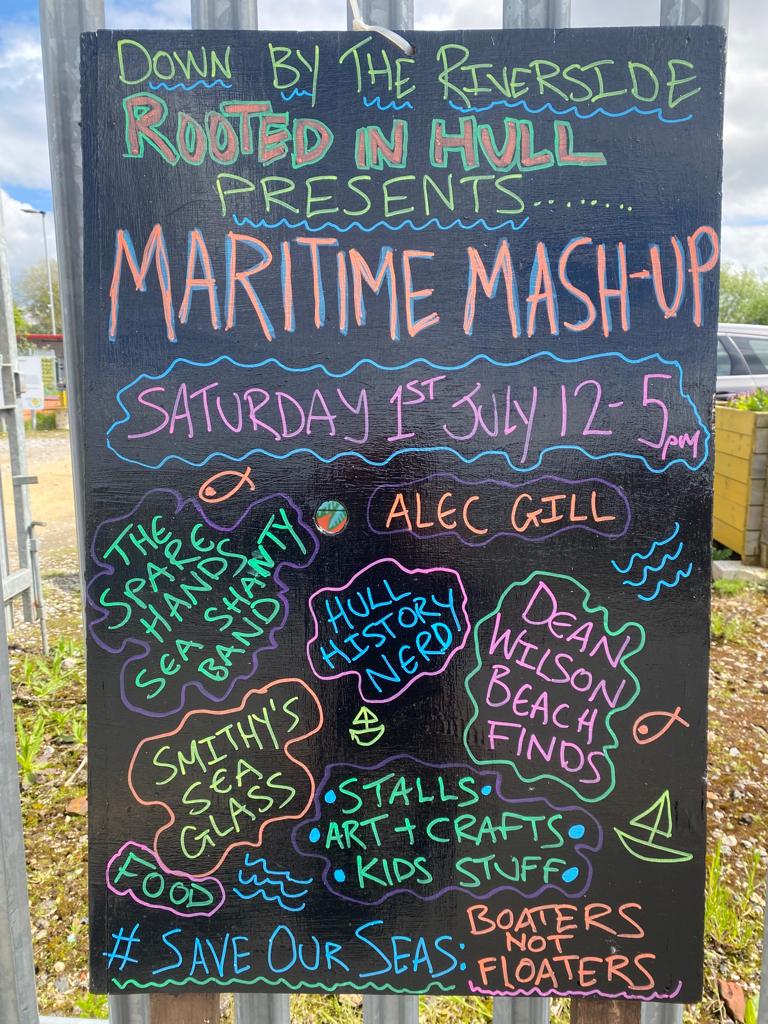 DOWN BY THE RIVERSIDE
ROOTED IN HULL
PRESENTS........
MARITIME MASH-UP
SATURDAY 1ST JULY 12-5pm
ALEC GILL
THE
SPARE
HANDS
SEA SHANTY
BAND
HULL
HISTORY
NERD
DEAN
WILSON
BEACH
FINDS
SMITHY'S
SEA
GLASS
•STALLS•
•ART + CRAFTS•
•KIDS STUFF•
FOOD
# SAVE OUR SEAS:
BOATERS
NOT
FLOATERS